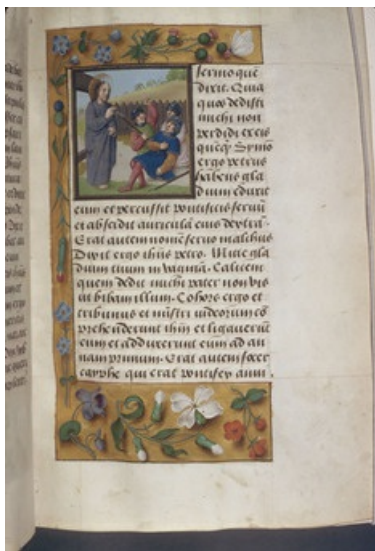 sermo quē
dixit. Quia
quos dedisti
michi non
perdidi ex eis
quēqȝ Symō
ergo petrus
habens gla
dium eduxit
eum et percussit pontificis seruū
et abscidit auriculā eius dextrā.
Erat autem nomē seruo malchus
Dixit ergo ihūs petro. Mitte gla
dium tuum in vaginā. Calicem
quem dedit michi pater non vis
ut bibam illum. Cohors ergo et
tribunus et mīstri iudeorum cō
prehenderunt ihm et ligauerūt
eum et adduxerunt eum ad an
nam primum. Erat autem socer
cayphe qui erat pontifex anni